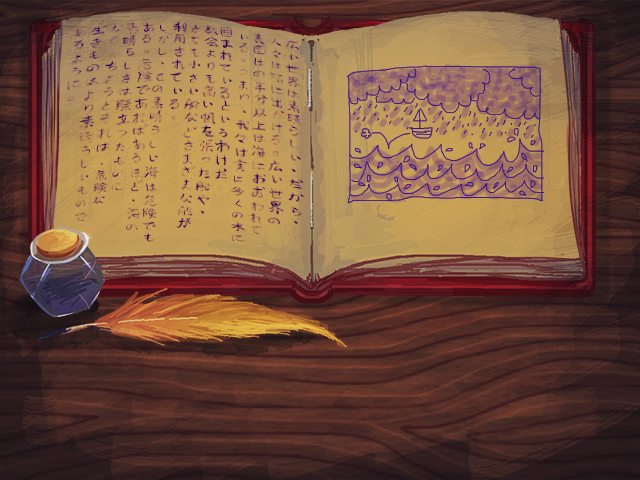 広い世界は素晴らしい。だから、
人々は旅に出かける。広い世界の
表面はの半分以上は海におおわれて
いる。つまり、我々は実に多くの水に
囲まれているというわけだ。
教会よりも高い帆を張った船や、
とても小さい船などさまざまな船が
利用されている。
しかし、この素晴らしい海は危険でも
ある。危険であればあるほど、海の
素晴らしさは際立つたものに
なる。ちょうどそれは、危険な
生きものがより素晴らしいもので
あるように。